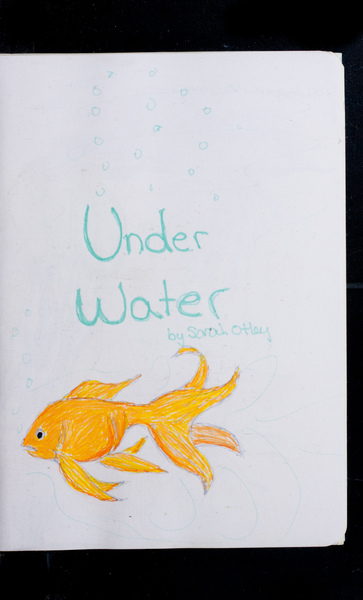 Under
Water
by Sarah Otley